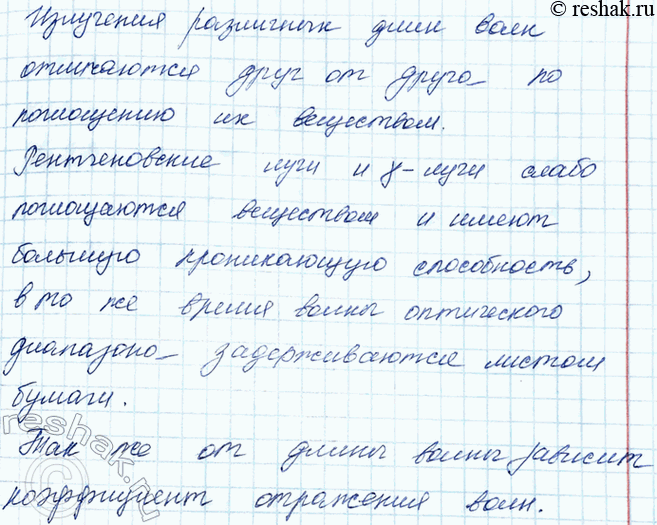 © reshak.ru
Излучения различных длин волн
отличаются друг от друга по
поглощению их веществом.
Рентгеновские лучи и γ-лучи слабо
поглощаются веществом и имеют
большую проникающую способность,
в то же время волны оптического
диапазона задерживаются листом
бумаги.
Так же от длины волны зависит
коэффициент отражения волн.
reshak.ru